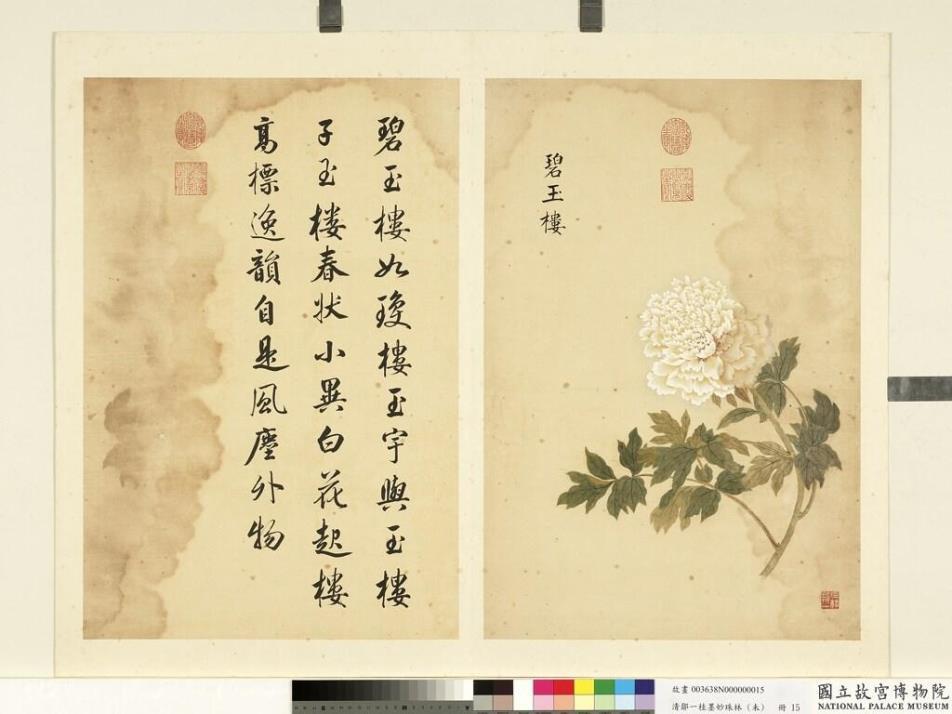 碧玉樓
碧玉樓如瓊樓玉宇與玉樓
子玉樓春狀小異白花起樓
高標逸韻自是風塵外物
故畫 003638N000000015
清鄒一桂墨妙珠林(未) 冊 15
國立故宮博物院
NATIONAL PALACE MUSEUM